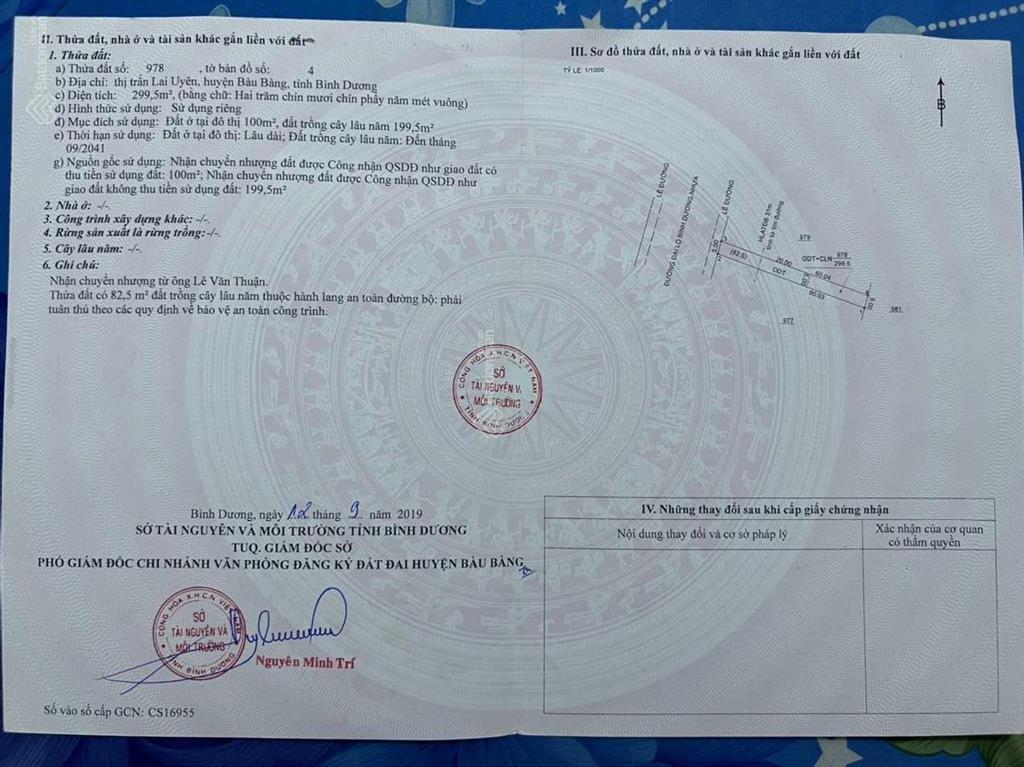 II. Thửa đất, nhà ở và tài sản khác gắn liền với đất
1. Thửa đất:
a) Thửa đất số: 978 , tờ bản đồ số: 4
b) Địa chỉ: thị trấn Lai Uyên, huyện Bàu Bàng, tỉnh Bình Dương
c) Diện tích: 299,5m², (bằng chữ: Hai trăm chín mươi chín phẩy năm mét vuông)
d) Hình thức sử dụng: Sử dụng riêng
đ) Mục đích sử dụng: Đất ở tại đô thị 100m², đất trồng cây lâu năm 199,5m²
e) Thời hạn sử dụng: Đất ở tại đô thị: Lâu dài; Đất trồng cây lâu năm: Đến tháng
09/2041
g) Nguồn gốc sử dụng: Nhận chuyển nhượng đất được Công nhận QSDĐ như giao đất có
thu tiền sử dụng đất: 100m²; Nhận chuyển nhượng đất được Công nhận QSDĐ như
giao đất không thu tiền sử dụng đất: 199,5m²
2. Nhà ở: -/-.
3. Công trình xây dựng khác: -/-.
4. Rừng sản xuất là rừng trồng: -/-.
5. Cây lâu năm: -/-.
6. Ghi chú:
Nhận chuyển nhượng từ ông Lê Văn Thuận.
Thửa đất có 82,5 m² đất trồng cây lâu năm thuộc hành lang an toàn đường bộ: phải
tuân thủ theo các quy định về bảo vệ an toàn công trình.
Bình Dương, ngày 12 tháng 9 năm 2019
SỞ TÀI NGUYÊN VÀ MÔI TRƯỜNG TỈNH BÌNH DƯƠNG
TUQ. GIÁM ĐỐC SỞ
PHÓ GIÁM ĐỐC CHI NHÁNH VĂN PHÒNG ĐĂNG KÝ ĐẤT ĐAI HUYỆN BÀU BÀNG
CỘNG HÒA X.H.C.N VIỆT NAM
SỞ
TÀI NGUYÊN VÀ
MÔI TRƯỜNG
TỈNH BÌNH DƯƠNG
Nguyễn Minh Trí
Số vào sổ cấp GCN: CS16955
CỘNG HÒA X.H.C.N VIỆT NAM
SỞ
TÀI NGUYÊN V
MÔI TRƯỜNG
TỈNH BÌNH DƯƠNG
III. Sơ đồ thửa đất, nhà ở và tài sản khác gắn liền với đất
TỶ LỆ: 1/1000
B
LỀ ĐƯỜNG
ĐƯỜNG ĐẠI LỘ BÌNH DƯƠNG NHỰA
LỀ ĐƯỜNG
HLATĐB 31m
tính từ tim đường
979
5.00
(82.5)
20.00
ODT
ODT+CLN
978
299.5
60.04
5.00
60.03
5.00
977
981
IV. Những thay đổi sau khi cấp giấy chứng nhận
Nội dung thay đổi và cơ sở pháp lý
Xác nhận của cơ quan
có thẩm quyền